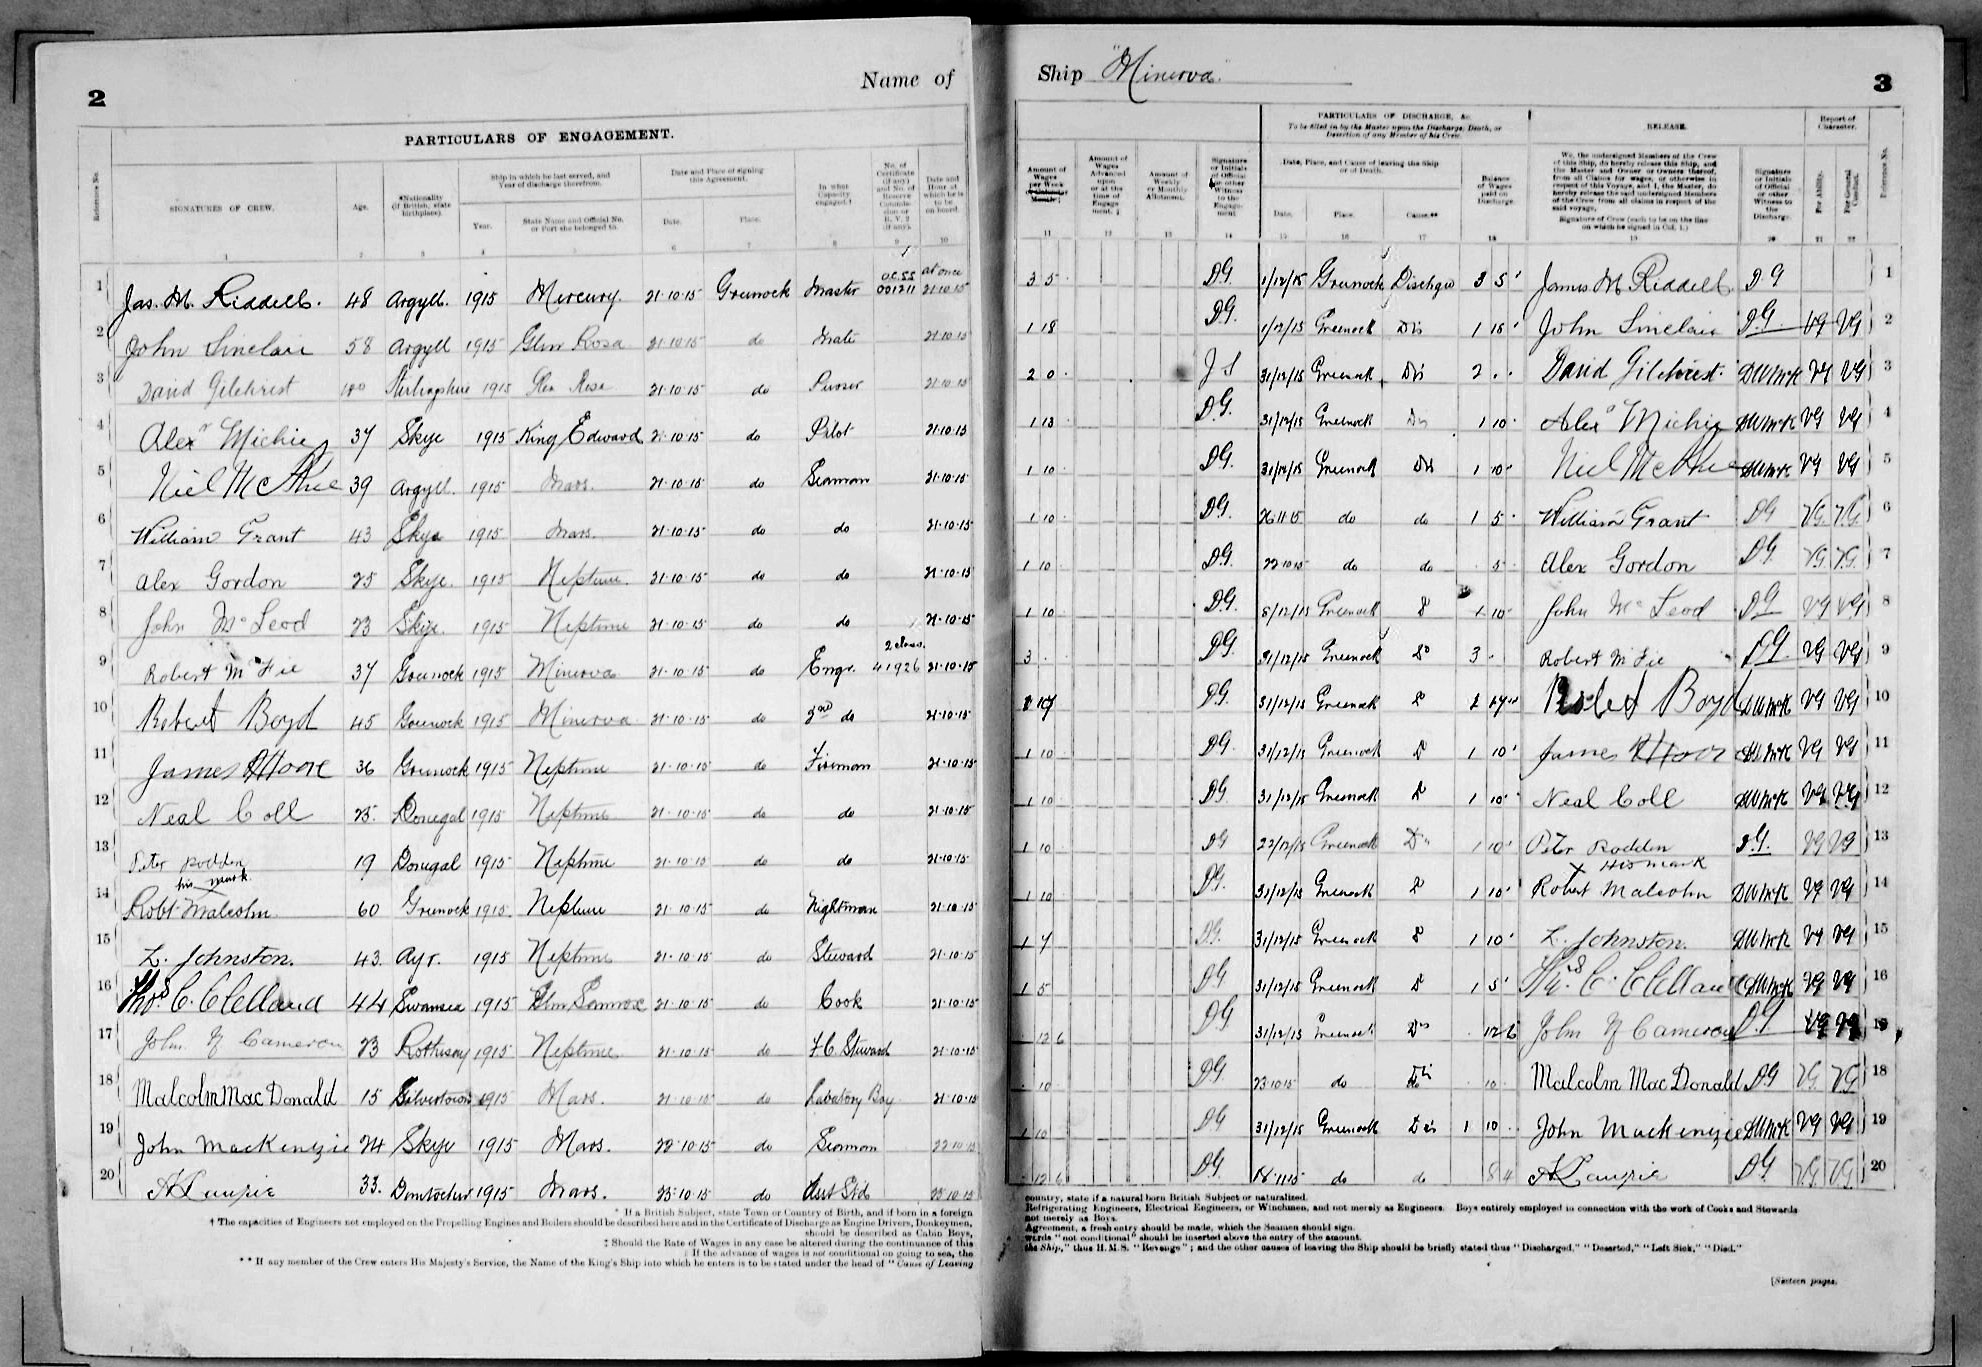 2
Name of
PARTICULARS OF ENGAGEMENT.
Reference No.
SIGNATURES OF CREW.
Age.
*Nationality (if British, state birthplace).
Ship in which he last served, and Year of discharge therefrom.
Year.
State Name and Official No. or Port she belonged to.
Date and Place of signing this Agreement.
Date.
Place.
In what Capacity engaged.†
No. of Certificate (if any) and No. of Reserve Commission or R. V. 2 (if any).
Date and Hour at which he is to be on board.
1 2 3 4 5 6 7 8 9 10
1 Jas. M. Riddell. 48 Argyll. 1915 Mercury. 21·10·15 Greenock Master 001211 at once 21·10·15
2 John Sinclair 58 Argyll 1915 Glen Rosa 21·10·15 do Mate 21·10·15
3 David Gilchrist Stirlingshire 1915 Glen Rosa 21·10·15 do Purser 21·10·15
4 Alexr Michie 37 Skye 1915 King Edward 21·10·15 do Pilot 21·10·15
5 Niel McPhee 39 Argyll. 1915 Mars. 21·10·15 do Seaman 21·10·15
6 William Grant 43 Skye 1915 Mars. 21·10·15 do do 21·10·15
7 Alex Gordon 25 Skye. 1915 Neptune. 21·10·15 do do 21·10·15
8 John McLeod 23 Skye. 1915 Neptune 21·10·15 do do 21·10·15
9 Robert McFie 37 Greenock 1915 Minerva 21·10·15 do Engr. 2 class. 41926 21·10·15
10 Robert Boyd 45 Greenock 1915 Minerva 21·10·15 do 2nd do 21·10·15
11 James Moore 36 Greenock 1915 Neptune 21·10·15 do Fireman 21·10·15
12 Neal Coll 25. Donegal 1915 Neptune 21·10·15 do do 21·10·15
13 Peter Rodden 19 Donegal 1915 Neptune 21·10·15 do do 21·10·15
his mark
14 Robt Malcolm 60 Greenock 1915. Neptune 21·10·15 do Nightman 21·10·15
15 L. Johnston. 43. Ayr. 1915 Neptune 21·10·15 do Steward 21·10·15
16 Thos. C. Clelland 44 Swansea 1915 Glen Sannox 21·10·15 do Cook 21·10·15
17 John Cameron 23 Rothesay 1915 Neptune 21·10·15 do F.C. Steward 21·10·15
18 Malcolm MacDonald 15 Silvertown 1915 Mars. 21·10·15 do Lavatory Boy 21·10·15
19 John MacKenzie 24 Skye 1915 Mars. 22·10·15 do Seaman 22·10·15
20 33. 1915 Mars. 23·10·15 do Asst Std 23·10·15
* If a British Subject, state Town or Country of Birth, and if born in a foreign
† The capacities of Engineers not employed on the Propelling Engines and Boilers should be described here and in the Certificate of Discharge as Engine Drivers, Donkeymen,
should be described as Cabin Boys,
‡ Should the Rate of Wages in any case be altered during the continuance of this
§ If the advance of wages is not conditional on going to sea, the
** If any member of the Crew enters His Majesty's Service, the Name of the King's Ship into which he enters is to be stated under the head of "Cause of Leaving
Ship "Minerva"
3
Amount of Wages per Week or Calendar Month‡
Amount of Wages Advanced upon or at the time of Engagement.‡
Amount of Weekly or Monthly Allotment.
Signature or Initials of Official or other Witness to the Engagement
PARTICULARS OF DISCHARGE, &c.
To be filled in by the Master upon the Discharge, Death, or Desertion of any Member of his Crew.
Date, Place, and Cause of leaving the Ship or of Death.
Date.
Place.
Cause.**
Balance of Wages paid on Discharge.
RELEASE.
We, the undersigned Members of the Crew of this Ship, do hereby release this Ship, and the Master and Owner or Owners thereof, from all Claims for wages, or otherwise in respect of this Voyage, and I, the Master, do hereby release the said undersigned Members of the Crew from all claims in respect of the said voyage.
Signature of Crew (each to be on the line on which he signed in Col. 1.)
Signature or Initials of Official or other Witness to the Discharge.
Report of Character.
For Ability.
For General Conduct.
Reference No.
11 12 13 14 15 16 17 18 19 20 21 22
3 5 D.G. 1/12/15 Greenock Discharge 3 5 James M Riddell D G 1
1 18 D.G. 1/12/15 Greenock Dis 1 18 John Sinclair D.G. VG VG 2
2 0 J S 31/12/15 Greenock Dis 2 David Gilchrist. DWMcK VG VG 3
1 13 D.G. 31/12/15 Greenock Dis 1 10 Alexr Michie DWMcK VG VG 4
1 10 D.G. 31/12/15 Greenock Dis 1 10 Niel McPhee DWMcK VG VG 5
1 10 D.G. 26·11·15 do do 1 5 William Grant DG VG. VG. 6
1 10 D.G. 22·10·15 do do 5 Alex Gordon D.G. VG. VG. 7
1 10 D.G. 8/12/15 Greenock D 1 10 John McLeod DG VG VG 8
3 D.G. 31/12/15 Greenock D 3 Robert McFie D.G. VG VG 9
D.G. 31/12/15 Greenock D 2 17 Robert Boyd DWMcK VG VG 10
1 10 D.G. 31/12/15 Greenock D 1 10 James Moore DWMcK VG VG 11
1 10 D.G. 31/12/15 Greenock D 1 10 Neal Coll DWMcK VG VG 12
1 10 DG 22/12/15 Greenock Dis 1 10 Peter Rodden D.G. VG VG 13
His mark
1 10 D.G. 31/12/15 Greenock D 1 10 Robert Malcolm DWMcK VG VG 14
1 7 DG. 31/12/15 Greenock D 1 10 L. Johnston. DWMcK VG VG 15
1 5 DG 31/12/15 Greenock D 1 5 Thos. C. Clelland DWMcK VG VG 16
12 6 DG 31/12/15 Greenock Dis 12 6 John Cameron D.G VG VG
10 D.G. 23·10·15 do do 10 Malcolm MacDonald DG VG VG 18
1 10 DG 31/12/15 Greenock Dis 1 10 John MacKenzie DWMcK VG VG 19
12 6 D.G. do do 8 4 D.G. VG VG 20
country, state if a natural born British Subject or naturalized.
Refrigerating Engineers, Electrical Engineers, or Winchmen, and not merely as Engineers. Boys entirely employed in connection with the work of Cooks and Stewards
not merely as Boys.
Agreement, a fresh entry should be made, which the Seamen should sign.
words "not conditional" should be inserted above the entry of the amount.
the Ship," thus H.M.S. "Revenge"; and the other causes of leaving the Ship should be briefly stated thus "Discharged," "Deserted," "Left Sick," "Died."
[Sixteen pages.